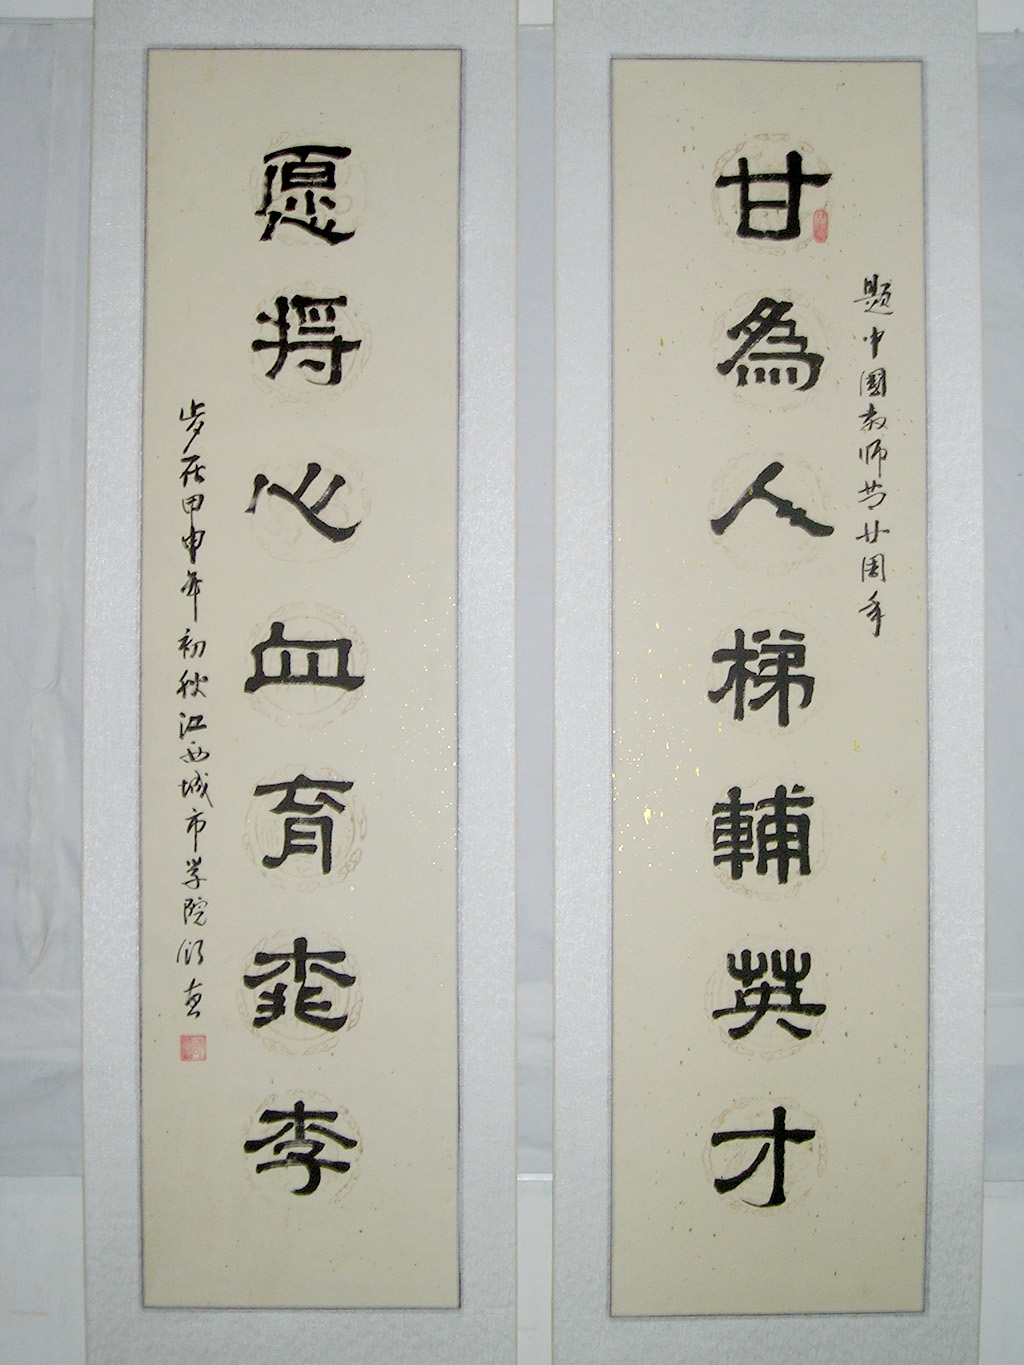 题中國教师节廿周年
甘為人梯輔英才
愿将心血育桃李
岁在甲申年初秋江西城市学院